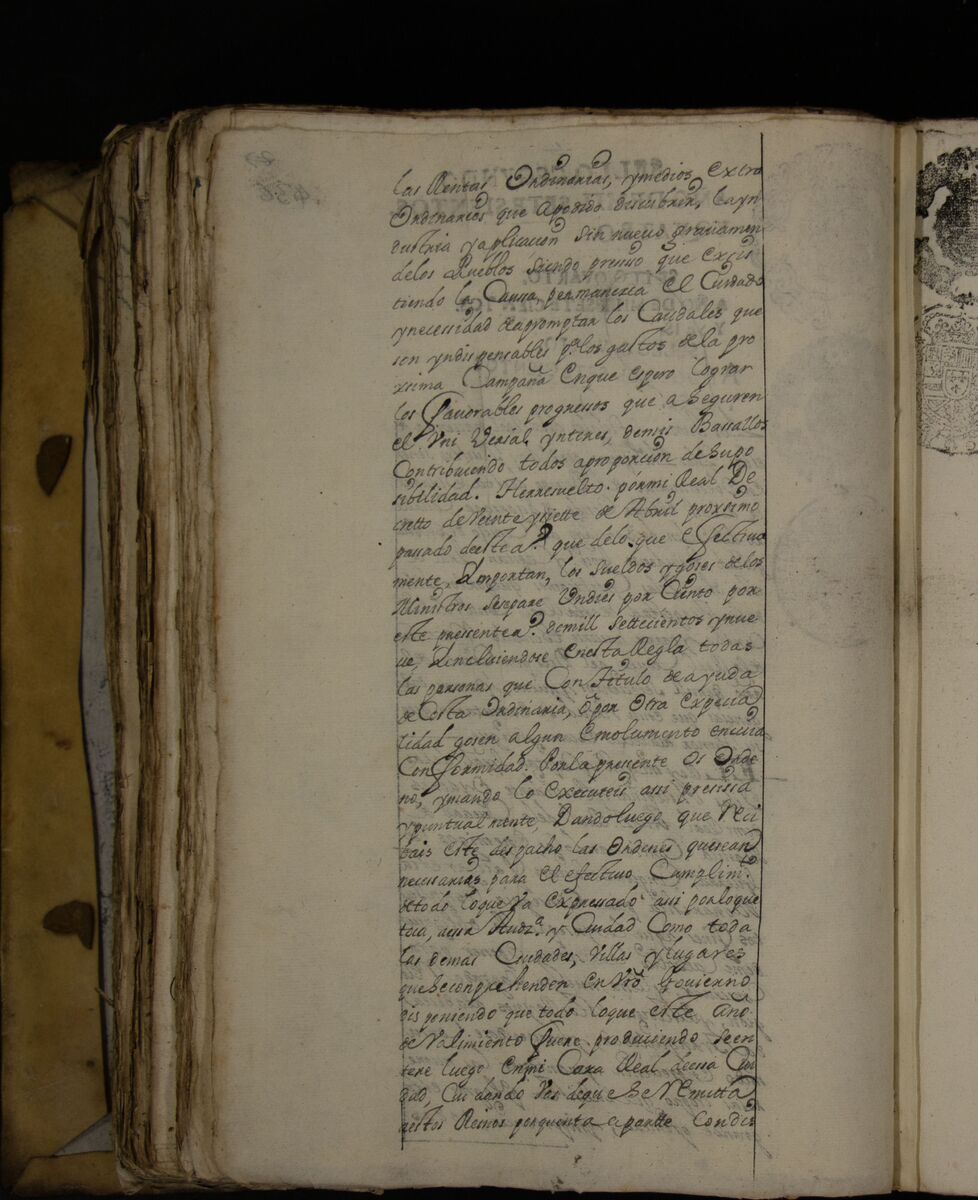 las Rentas Ordinarias, y medios extra
Ordinarios que apodido discubrir, la yn
dustria y aplicacion sin nuevo gravamen
de los Pueblos siendo presiso que exsis
tiendo la Causa permanezca el Cuidado
y necessidad de apromptar los Caudales que
son yndispensables pa. los gastos de la pro
xsima Campaña en que espero lograr
los favorables progressos que aseguren
el Vniversial ynteres, demis Bassallos
Contribuiendo todos aproporcion de supo
sibilidad. Herresuelto. pórmi Real De
cretto de Veinte ysiette de Abril proxsimo
passado deeste a.º que delo que efectiva
mente, Ymportan, los sueldos y goses de los
Ministros sesepare Undies por Ciento por
este pressente a.º demill settecientos ynue
ve, Yncluiendose enesta Regla todas
las personas que Con Titulo de ayuda
de Costa Ordinaria, ó por otra expecia
lidad gosen algun Emolumento encuia
Conformidad. Porla presente Os Orde
no, ymando lo executeis assi presissa
ypuntualmente, Dandoluego que Reci
bais este despacho las Ordenes quesean
necessarias para el efectivo Cumplimto.
detodo loque va expressado assi porloque
toca, aessa Audza. y Ciudad Como toda
las demas Ciudades, Villas y lugares
quesecomprehenden en vro Govierno
disponiendo que todo loque este año
de Valimiento fuere produciendo seen
tere luego enmi Caxa Real deessa Ciu
dad, Cuidando Vos deque se Remitta
aestos Reinos porquenta aparte Condis